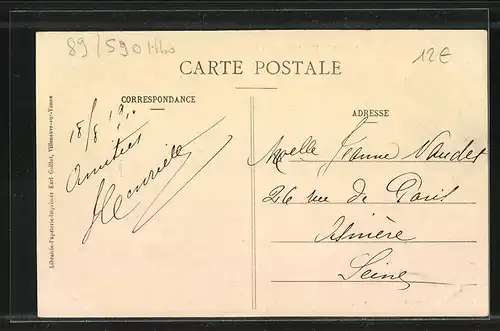 89/590 Hbo
12€
CARTE POSTALE
CORRESPONDANCE
ADRESSE
18/8 19..
Amitiés
Henriette
Librairie-Papeterie-Imprimerie Karl Guillot, Villeneuve-sur-Yonne
Melle Jeanne Naudet
26 rue de Paris
Asnière
Seine